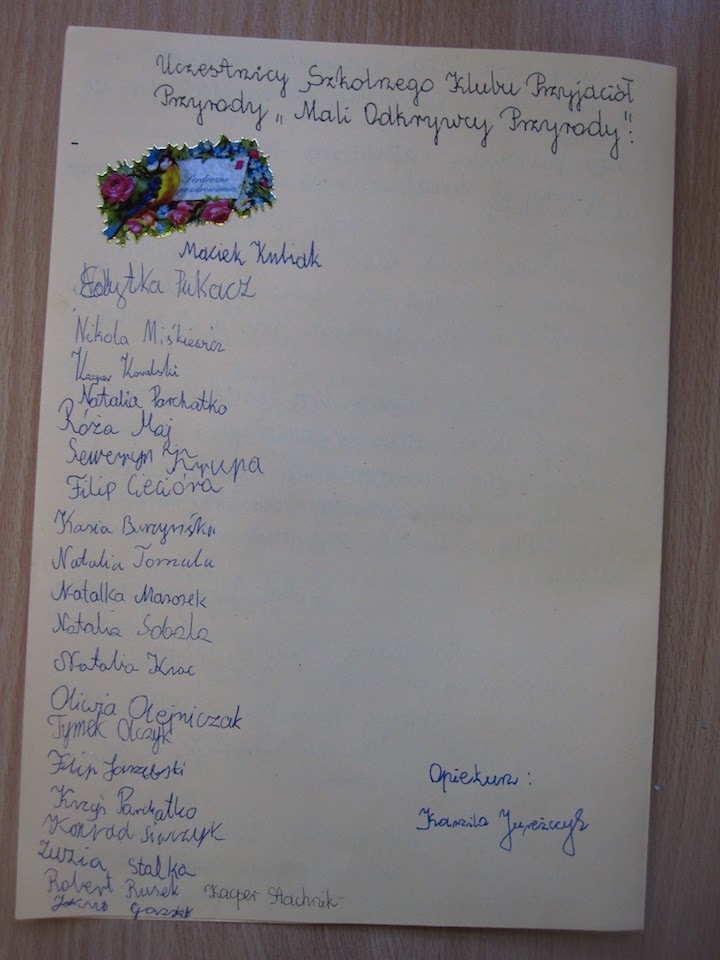 Uczestnicy Szkolnego Klubu Przyjaciół
Przyrody „Mali Odkrywcy Przyrody":
Serdeczne
pozdrowienia
Maciek Kubiak
Edytka Pukacz
Nikola Miśkiewicz
Kacper Kowalski
Natalia Parchatko
Róża Maj
Seweryn Krupa
Filip Ciecióra
Kasia Burzyńska
Natalia
Natalka Marosek
Natalia Sobala
Natalia Krac
Oliwia Olejniczak
Tymek Olczyk
Filip Jarzębski
Krzyś Parchatko
Konrad
Zuzia Stalka
Robert Rusek Kacper Stachnik
Opiekun:
Kamila